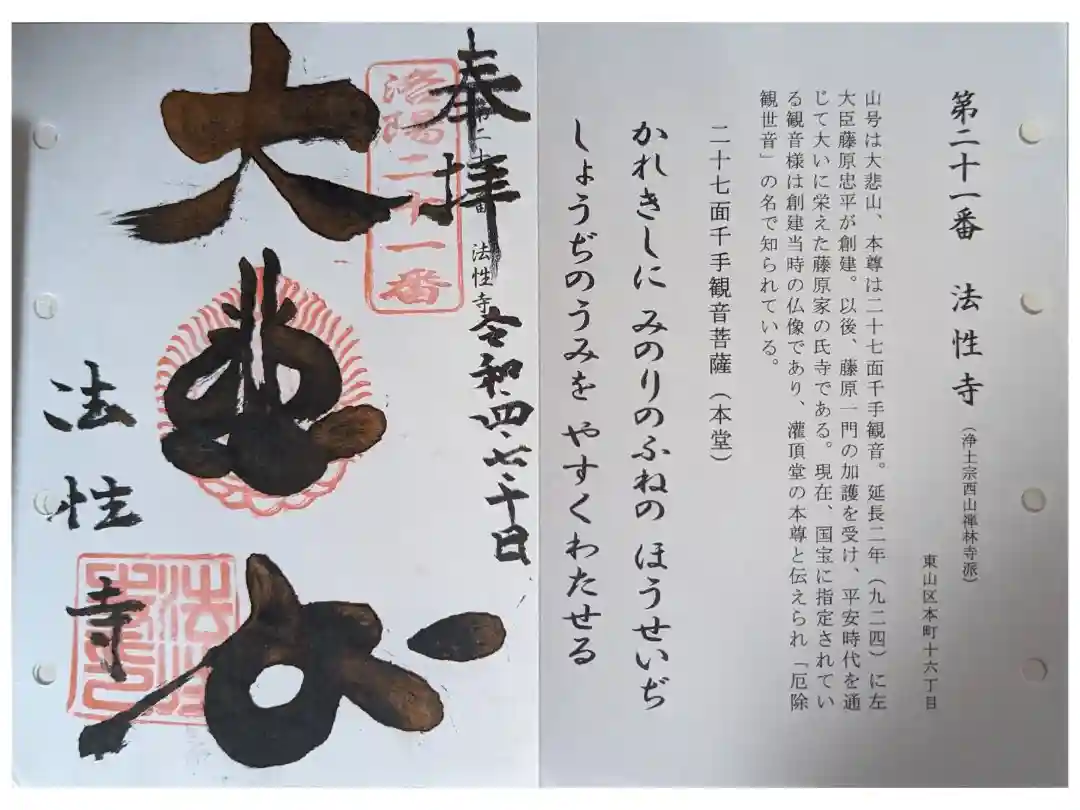 第二十一番 法性寺(浄土宗西山禅林寺派)
東山区本町十六丁目
山号は大悲山、本尊は二十七面千手観音。延長二年(九二四)に左
大臣藤原忠平が創建。以後、藤原一門の加護を受け、平安時代を通
じて大いに栄えた藤原家の氏寺である。現在、国宝に指定されてい
る観音様は創建当時の仏像であり、灌頂堂の本尊と伝えられ「厄除
観世音」の名で知られている。
二十七面千手観音菩薩(本堂)
かれきしに みのりのふねの ほうせいぢ
しょうぢのうみを やすくわたせる
奉拝
第二十一番 法性寺
令和四七、十日
洛陽二十一番
大悲
法性寺